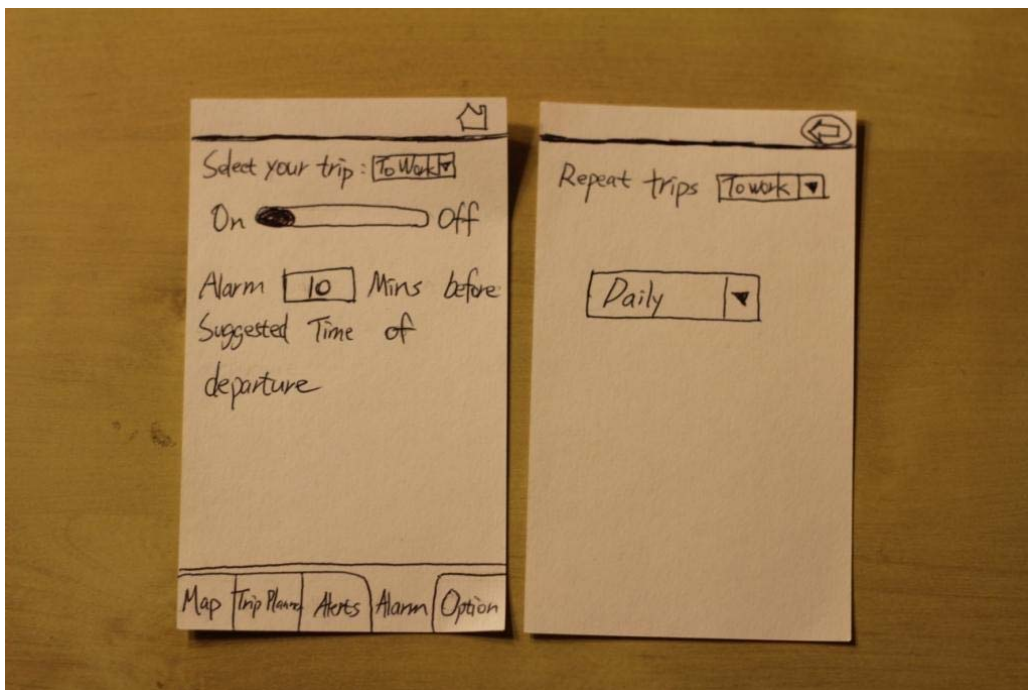 Select your trip: To Work
On Off
Alarm 10 Mins before
Suggested Time of
departure
Map Trip Planner Alerts Alarm Option
Repeat trips To work
Daily